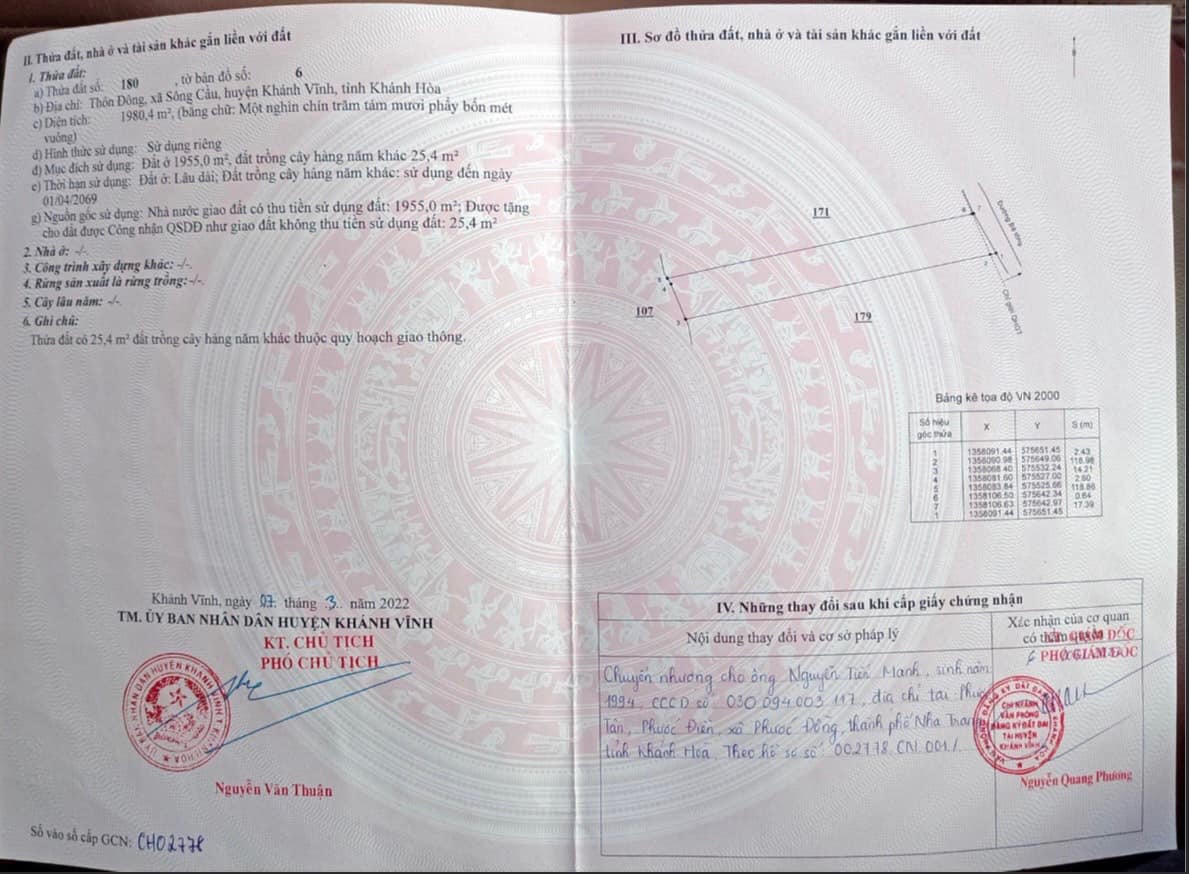 II. Thửa đất, nhà ở và tài sản khác gắn liền với đất
1. Thửa đất:
a) Thửa đất số: 180 , tờ bản đồ số: 6
b) Địa chỉ: Thôn Đông, xã Sông Cầu, huyện Khánh Vĩnh, tỉnh Khánh Hòa
c) Diện tích: 1980,4 m², (bằng chữ: Một nghìn chín trăm tám mươi phẩy bốn mét
vuông)
d) Hình thức sử dụng: Sử dụng riêng
đ) Mục đích sử dụng: Đất ở 1955,0 m², đất trồng cây hàng năm khác 25,4 m²
e) Thời hạn sử dụng: Đất ở: Lâu dài; Đất trồng cây hàng năm khác: sử dụng đến ngày
01/04/2069
g) Nguồn gốc sử dụng: Nhà nước giao đất có thu tiền sử dụng đất: 1955,0 m²; Được tặng
cho đất được Công nhận QSDĐ như giao đất không thu tiền sử dụng đất: 25,4 m²
2. Nhà ở: -/-.
3. Công trình xây dựng khác: -/-.
4. Rừng sản xuất là rừng trồng: -/-.
5. Cây lâu năm: -/-.
6. Ghi chú:
Thửa đất có 25,4 m² đất trồng cây hàng năm khác thuộc quy hoạch giao thông.
Khánh Vĩnh, ngày 07. tháng .3.. năm 2022
TM. ỦY BAN NHÂN DÂN HUYỆN KHÁNH VĨNH
KT. CHỦ TỊCH
PHÓ CHỦ TỊCH
Nguyễn Văn Thuận
Số vào sổ cấp GCN: CH02778
III. Sơ đồ thửa đất, nhà ở và tài sản khác gắn liền với đất
171
Đường Bê tông
107
179
Chỉ giới QHGT
Bảng kê tọa độ VN 2000
Số hiệu góc thửa X Y S (m)
1 1358091.44 575651.45 2.43
2 1358090.98 575649.06 118.98
3 1358068.40 575532.24 14.21
4 1358081.60 575527.00 2.60
5 1358083.84 575525.66 118.86
6 1358106.50 575642.34 0.64
7 1358106.63 575642.97 17.39
1 1358091.44 575651.45
IV. Những thay đổi sau khi cấp giấy chứng nhận
Nội dung thay đổi và cơ sở pháp lý
Xác nhận của cơ quan
có thẩm quyền
PHÓ GIÁM ĐỐC
Chuyển nhượng cho ông Nguyễn Tiến Mạnh, sinh năm
1994, CCCD số: 030 094 003 117, địa chỉ tại Phước
Tân, Phước Điền, xã Phước Đồng, thành phố Nha Trang
tỉnh Khánh Hoà, Theo hồ sơ số: 002778.CN.001./.
CHI NHÁNH
VĂN PHÒNG
ĐĂNG KÝ ĐẤT ĐAI
TẠI HUYỆN
KHÁNH VĨNH
Nguyễn Quang Phương